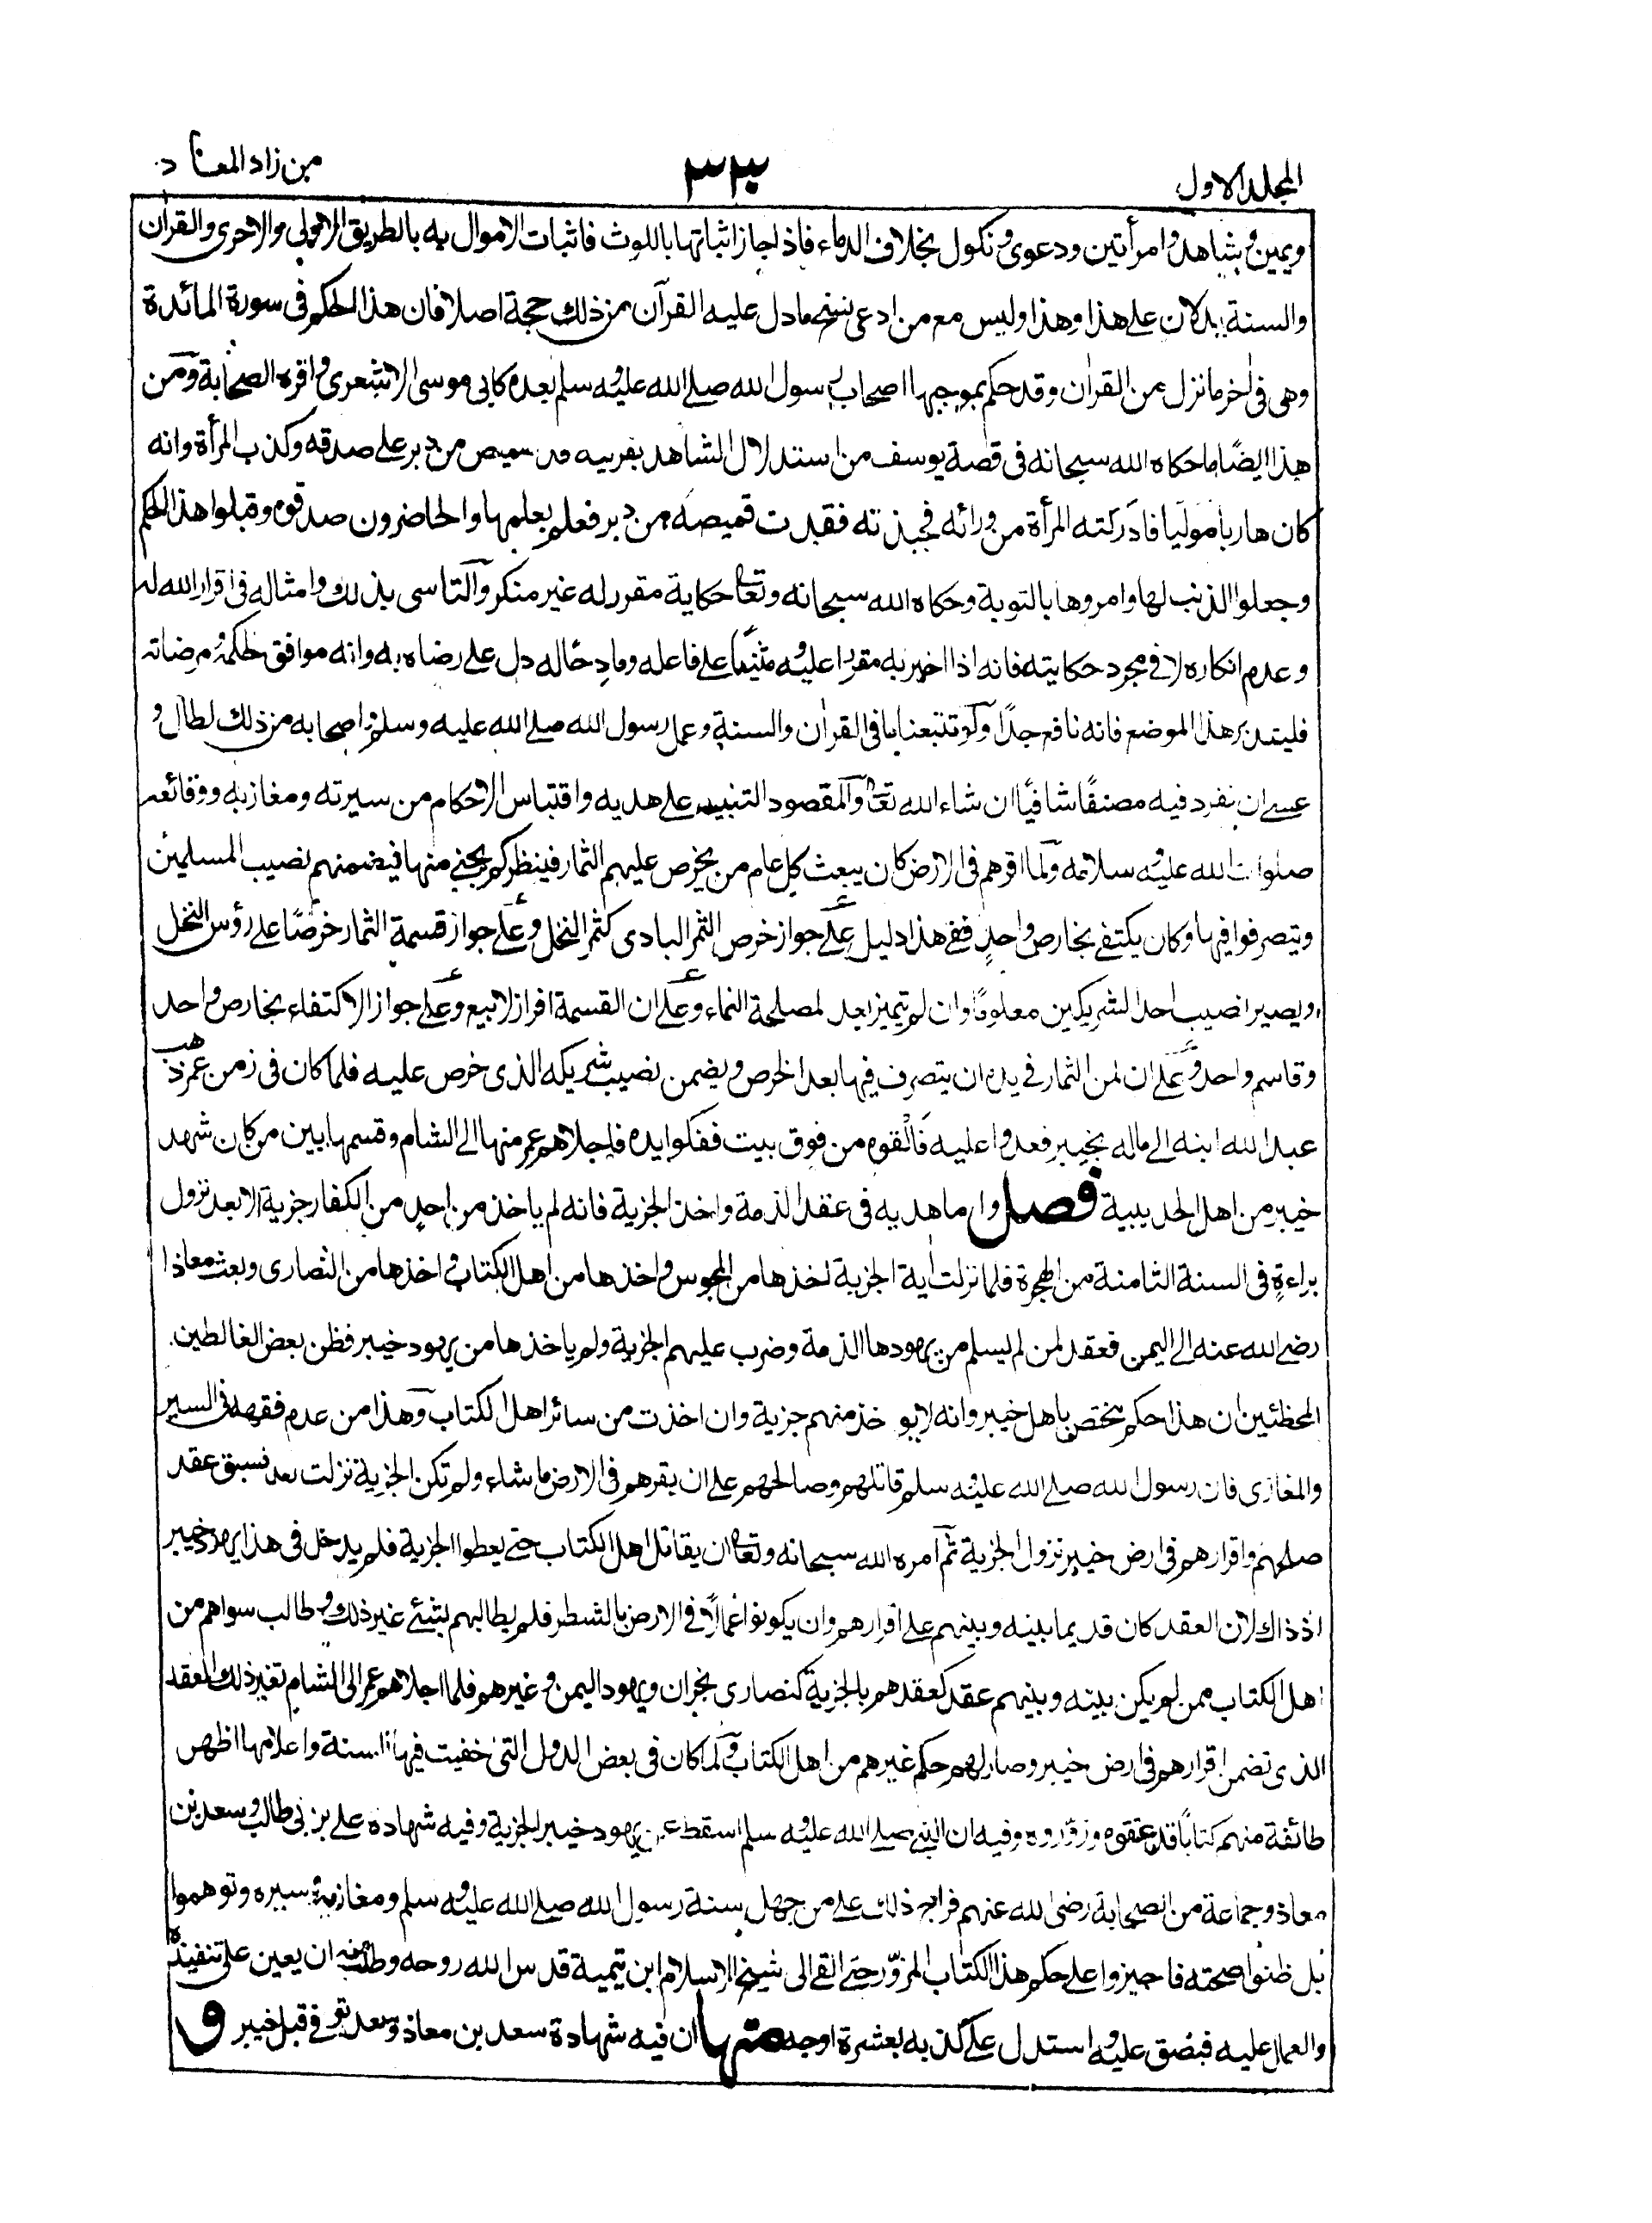 المجلد الاول
٣٣٠
من زاد المعاد
ويمين وبشاهد وامرأتين ودعوى ونكول بخلاف الدماء فاذا جاز اثباتها باللوث فاثبات الاموال به بالطريق الاولى والاحرى والقرأن
والسنة يدلان على هذا وهذا وليس مع من ادعى نسخ ما دل عليه القرآن من ذلك حجة اصلا فان هذا الحكم فى سورة المائدة
وهى فى أخر ما نزل من القرأن وقد حكم بموجبها اصحاب رسول الله صلے الله عليه وسلم بعده كابى موسى الاشعرى واقره الصحابة ومن
هذا ايضًا ما حكاه الله سبحانه فى قصة يوسف من استدلال الشاهد بقرينة قد القميص من دبر على صدقه وكذب المرأة وانه
كان هاربا موليا فادركته المرأة من ورائه فجبذته فقدت قميصه من دبر فعلم بعلمها والحاضرون صدقوه وقبلوا هذا الحكم
وجعلوا الذنب لها وامروها بالتوبة وحكاه الله سبحانه وتعا حكاية مقرر له غير منكر والتاسى بذلك وامثاله فى اقرار الله له
وعدم انكاره لا فى مجرد حكايته فانه اذا اخبر به مقرا عليه ومثنيًا على فاعله ومادحًا له دل على رضاه به وانه موافق لحكمه ومرضاته
فليتدبر هذا الموضع فانه نافع جدًا ولو تتبعنا ما فى القرأن والسنة وعمل رسول الله صلے الله عليه وسلم واصحابه من ذلك لطال و
عسى ان نفرد فيه مصنفًا شافيًا ان شاء الله تعا والمقصود التنبيه على هديه واقتباس الاحكام من سيرته ومغازيه ووقائعه
صلوات الله عليه وسلامه ولما اقرهم فى الارض كان يبعث كل عام من يخرص عليهم الثمار فينظر كم يجنى منها فيضمنهم نصيب المسلمين
ويتصرفوا فيها وكان يكتفى بخارص واحدٍ ففى هذا دليل على جواز خرص الثمر البادى كثمر النخل وعلى جواز قسمة الثمار خرصًا على رؤس النخل
ويصير نصيب احد الشريكين معلومًا وان لم يتميز بعد لمصلحة النماء وعلى ان القسمة افراز لا بيع وعلى جواز الاكتفاء بخارص واحد
وقاسم واحد وعلى ان لمن الثمار فى يده ان يتصرف فيها بعد الخرص ويضمن نصيب شريكه الذى خرص عليه فلما كان فى زمن عمر ذهب
عبد الله ابنه الى ماله بخيبر فعدوا عليه فالقوه من فوق بيت ففكوا يده فاجلاهم عمر منها الى الشام وقسمها بين من كان شهد
خيبر من اهل الحديبية فصل واما هديه فى عقد الذمة واخذ الجزية فانه لم ياخذ من احدٍ من الكفار جزية الا بعد نزول
براءةٍ فى السنة الثامنة من الهجرة فلما نزلت أية الجزية اخذها من المجوس واخذها من اهل الكتاب واخذها من النصارى وبعث معاذا
رضى الله عنه الى اليمن فعقد لمن لم يسلم من يهودها الذمة وضرب عليهم الجزية ولم ياخذها من يهود خيبر فظن بعض الغالطين
المخطئين ان هذا حكم مختص باهل خيبر وانه لا يوخذ منهم جزية وان اخذت من سائر اهل الكتاب وهذا من عدم فقهه فى السير
والمغازى فان رسول الله صلے الله عليه وسلم قاتلهم وصالحهم على ان يقرهم فى الارض ما شاء ولم تكن الجزية نزلت بعد فسبق عقد
صلحهم واقرارهم فى ارض خيبر نزول الجزية ثم امره الله سبحانه وتعا ان يقاتل اهل الكتاب حتى يعطوا الجزية فلم يدخل فى هذا يهود خيبر
اذ ذاك لان العقد كان قديما بينه وبينهم على اقرارهم وان يكونوا عمالًا فى الارض بالشطر فلم يطالبهم بشئ غير ذلك وطالب سواهم من
اهل الكتاب ممن لم يكن بينه وبينهم عقد كعقدهم بالجزية كنصارى نجران ويهود اليمن وغيرهم فلما اجلاهم عمر الى الشام تغير ذلك العقد
الذى تضمن اقرارهم فى ارض خيبر وصار لهم حكم غيرهم من اهل الكتاب ولما كان فى بعض الدول التى خفيت فيها السنة واعلامها اظهر
طائفة منهم كتابًا قد عتقوه وزوروه وفيه ان النبى صلے الله عليه وسلم اسقط عن يهود خيبر الجزية وفيه شهادة على بن ابى طالب وسعد بن
معاذ وجماعة من الصحابة رضى الله عنهم فراج ذلك على من جهل سنة رسول الله صلے الله عليه وسلم ومغازيه وسيره وتوهموا
بل ظنوا صحته فاجيزوا على حكم هذا الكتاب المزوّر حتى القى الى شيخ الاسلام ابن تيمية قدس الله روحه وطلب منه ان يعين على تنفيذه
والعمل عليه فبصق عليه واستدل على كذبه بعشرة اوجه منها ان فيه شهادة سعد بن معاذ وسعد توفى قبل خيبر و